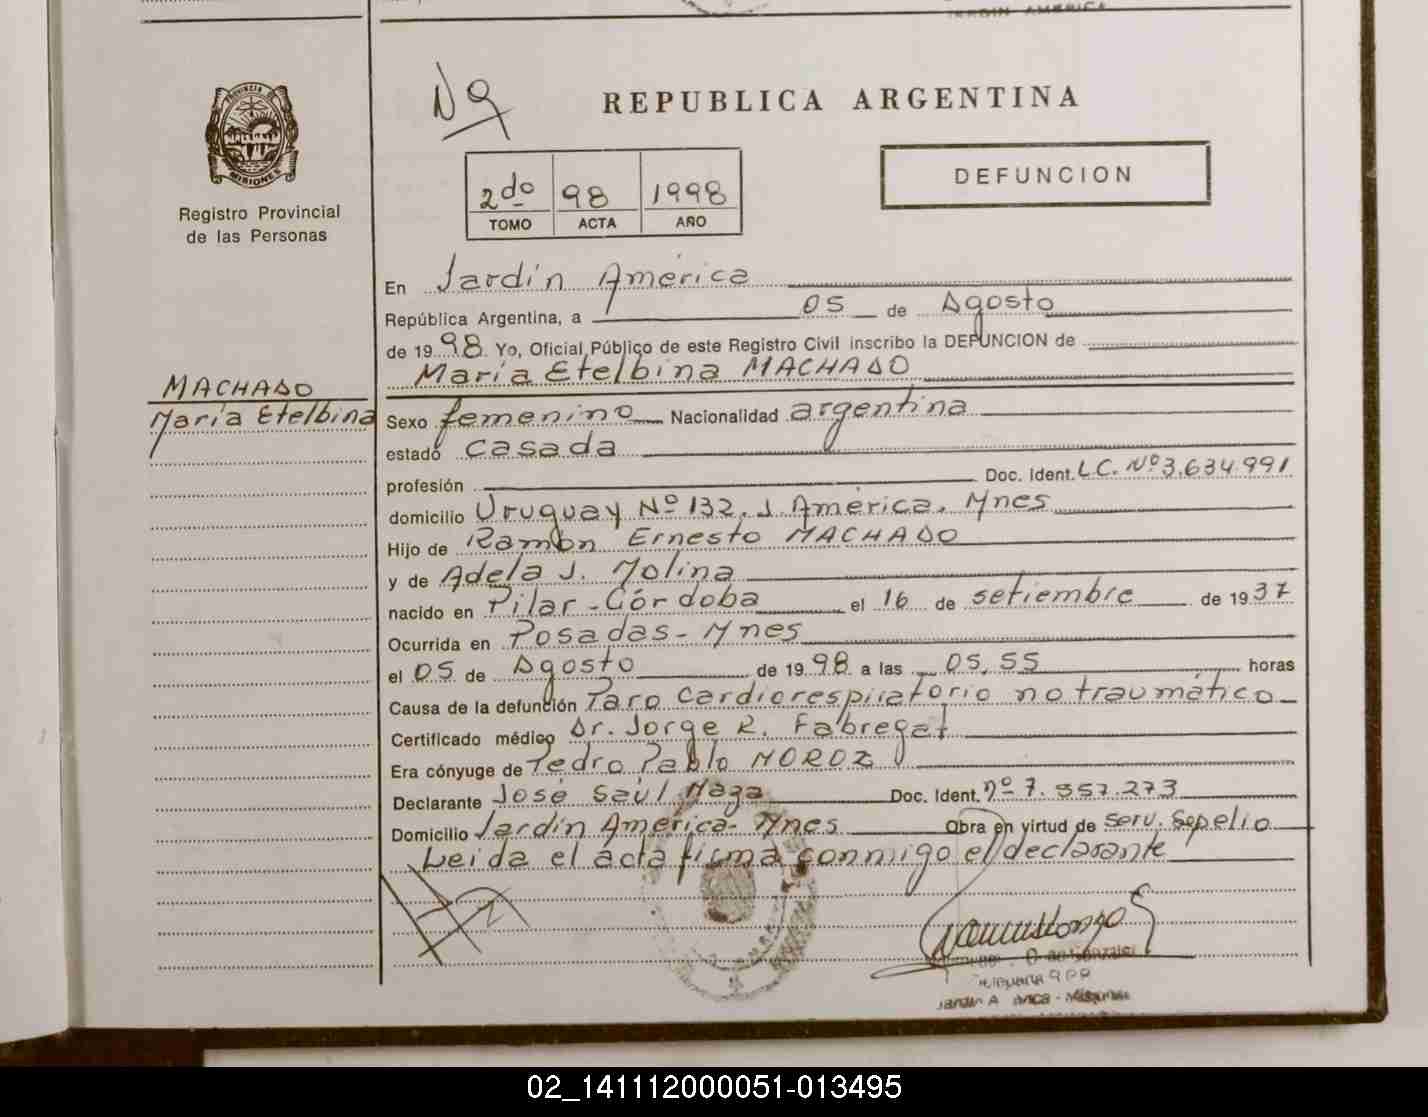 JARDIN AMERICA
PROVINCIA DE
MISIONES
Registro Provincial
de las Personas
REPUBLICA ARGENTINA
2do 98 1998
TOMO ACTA AÑO
DEFUNCION
En Jardín América
República Argentina, a 05 de Agosto
de 1998. Yo, Oficial Público de este Registro Civil inscribo la DEFUNCION de
María Etelbina MACHADO
MACHADO
María Etelbina
Sexo femenino Nacionalidad argentina
estado casada
profesión Doc. Ident. L.C. Nº 3.634.991
domicilio Uruguay Nº 132. J. América. Mnes
Hijo de Ramón Ernesto MACHADO
y de Adela J. Molina
nacido en Pilar - Córdoba el 16 de setiembre de 1937
Ocurrida en Posadas - Mnes
el 05 de Agosto de 1998 a las 05,55 horas
Causa de la defunción Paro cardiorespiratorio no traumático
Certificado médico Dr. Jorge R. Fabregat
Era cónyuge de Pedro Pablo MOROZ
Declarante José Saúl Maza Doc. Ident. nº 7.557.273
Domicilio Jardín América - Mnes Obra en virtud de serv. sepelio
Leída el acta firma conmigo el declarante
02_141112000051-013495